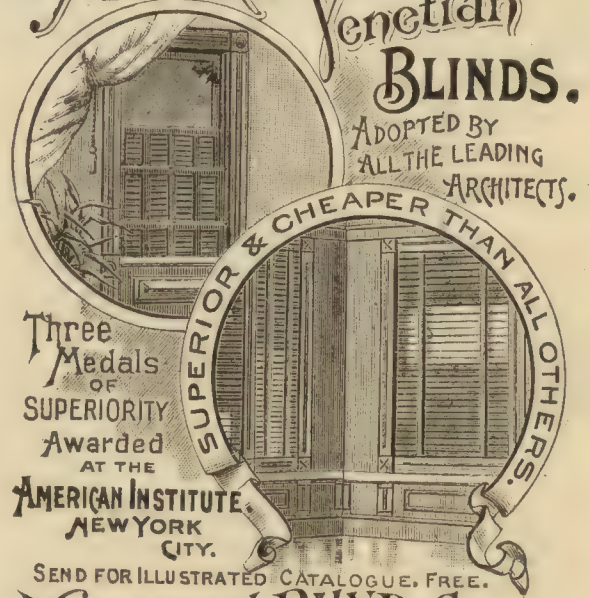 Venetian
BLINDS.
ADOPTED BY
ALL THE LEADING
ARCHITECTS.
SUPERIOR & CHEAPER THAN ALL OTHERS.
Three
Medals
OF
SUPERIORITY
Awarded
AT THE
AMERICAN INSTITUTE
NEW YORK
CITY.
SEND FOR ILLUSTRATED CATALOGUE. FREE.